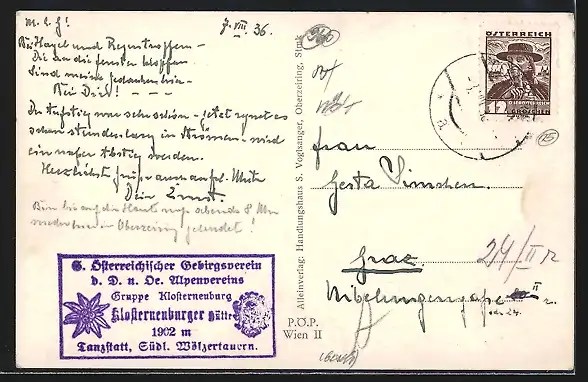 m. l. G!
7. VIII. 36.
Bei Hagel und Regentropfen –
Die an die Fenster klopfen
Sind meine Gedanken hin –
Bei Dir! – – –
Der Aufstieg war sehr schön – jetzt regnet es
schon stundenlang in Strömen – wird
ein nasser Abstieg werden.
Herzlichste Grüsse auch an
Dein Ernst.
Bin bis auf die Haut nass abends 8 Uhr
wieder in Oberzeiring gelandet!
S. Österreichischer Gebirgsverein
d. D. u. Oe. Alpenvereins
Gruppe Klosterneuburg
Klosterneuburger Hütte
1902 m
Tanzstatt, Südl. Wölzertauern.
Alleinverlag: Handlungshaus S. Voglsanger, Oberzeiring, Stmk
P.Ö.P.
Wien II
ÖSTERREICH
OBERÖSTERREICH
12 GROSCHEN
15
Frau
Gerta
Graz.
24/II r
Nibelungengasse
II